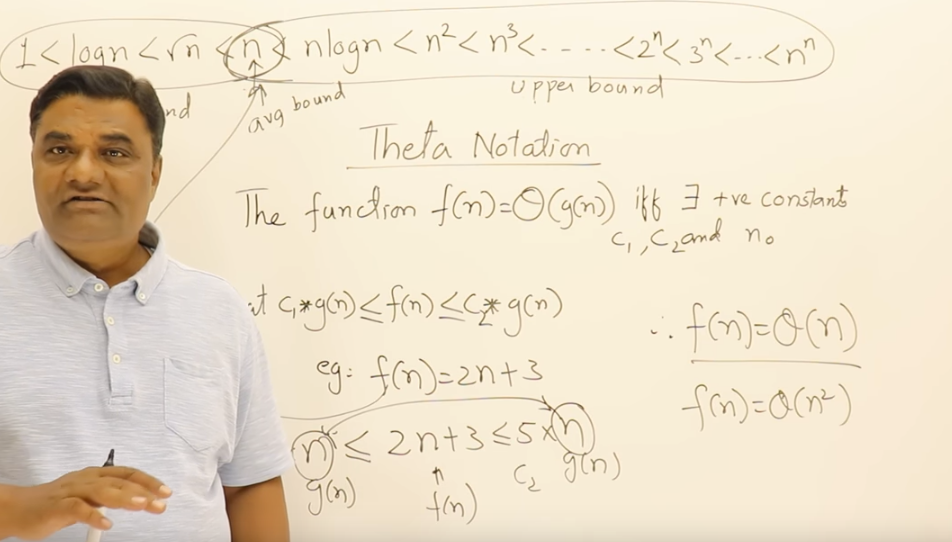 1 < logn < √n < n < nlogn < n² < n³ < - - - - < 2ⁿ < 3ⁿ < --- < nⁿ
nd avg bound upper bound
Theta Notation
The function f(n)=Θ(g(n)) iff ∃ +ve constants
c₁, c₂ and n₀
at c₁*g(n) ≤ f(n) ≤ c₂* g(n)
eg: f(n)=2n+3
n ≤ 2n+3 ≤ 5×n
g(n) f(n) c₂ g(n)
∴ f(n)=Θ(n)
f(n)=Θ(n²)